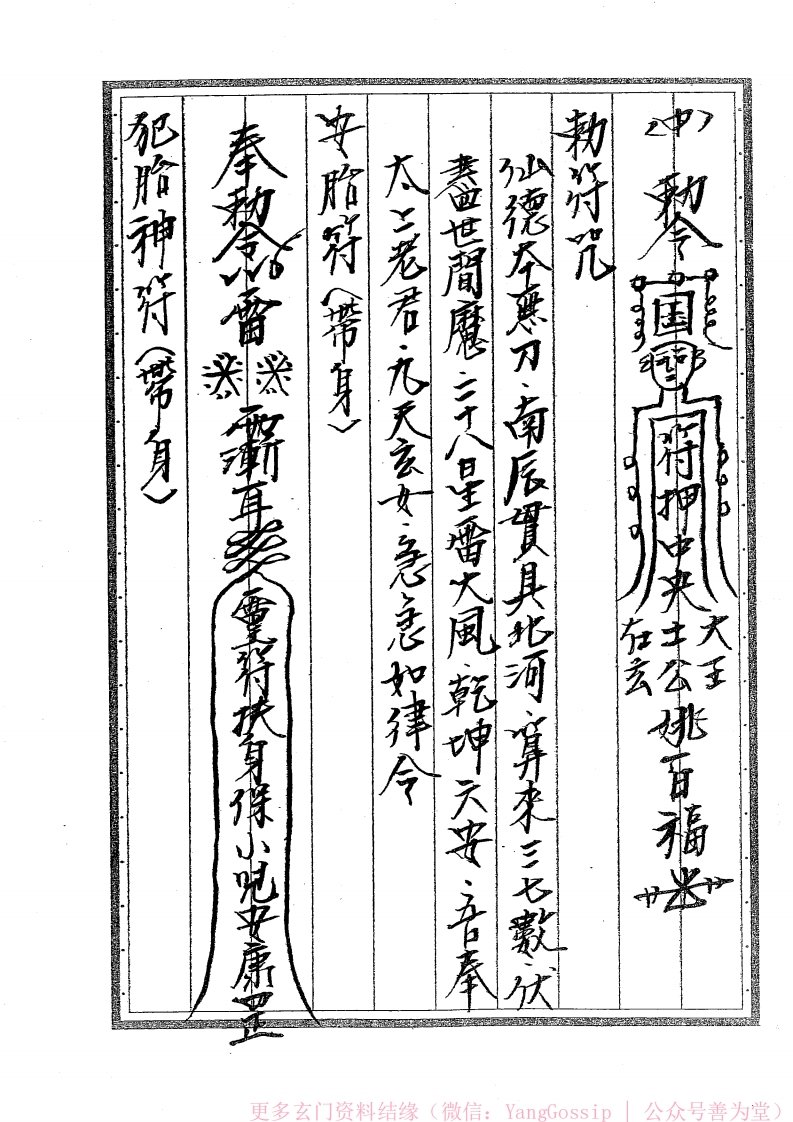 〈中〉勅令
国
符押中央土公姚百福
大王
在玄
勅符咒
仙德本無刀、南辰貫具北河、算來三七數、伏
盡世間魔、二十八星雷火風、乾坤六安、吾奉
太上老君、九天玄女、急急如律令
安胎符〈帶身〉
奉勅令
雷
耳
靈符扶身保小児安康罡
犯胎神符〈帶身〉
更多玄门资料结缘（微信：YangGossip | 公众号善为堂）